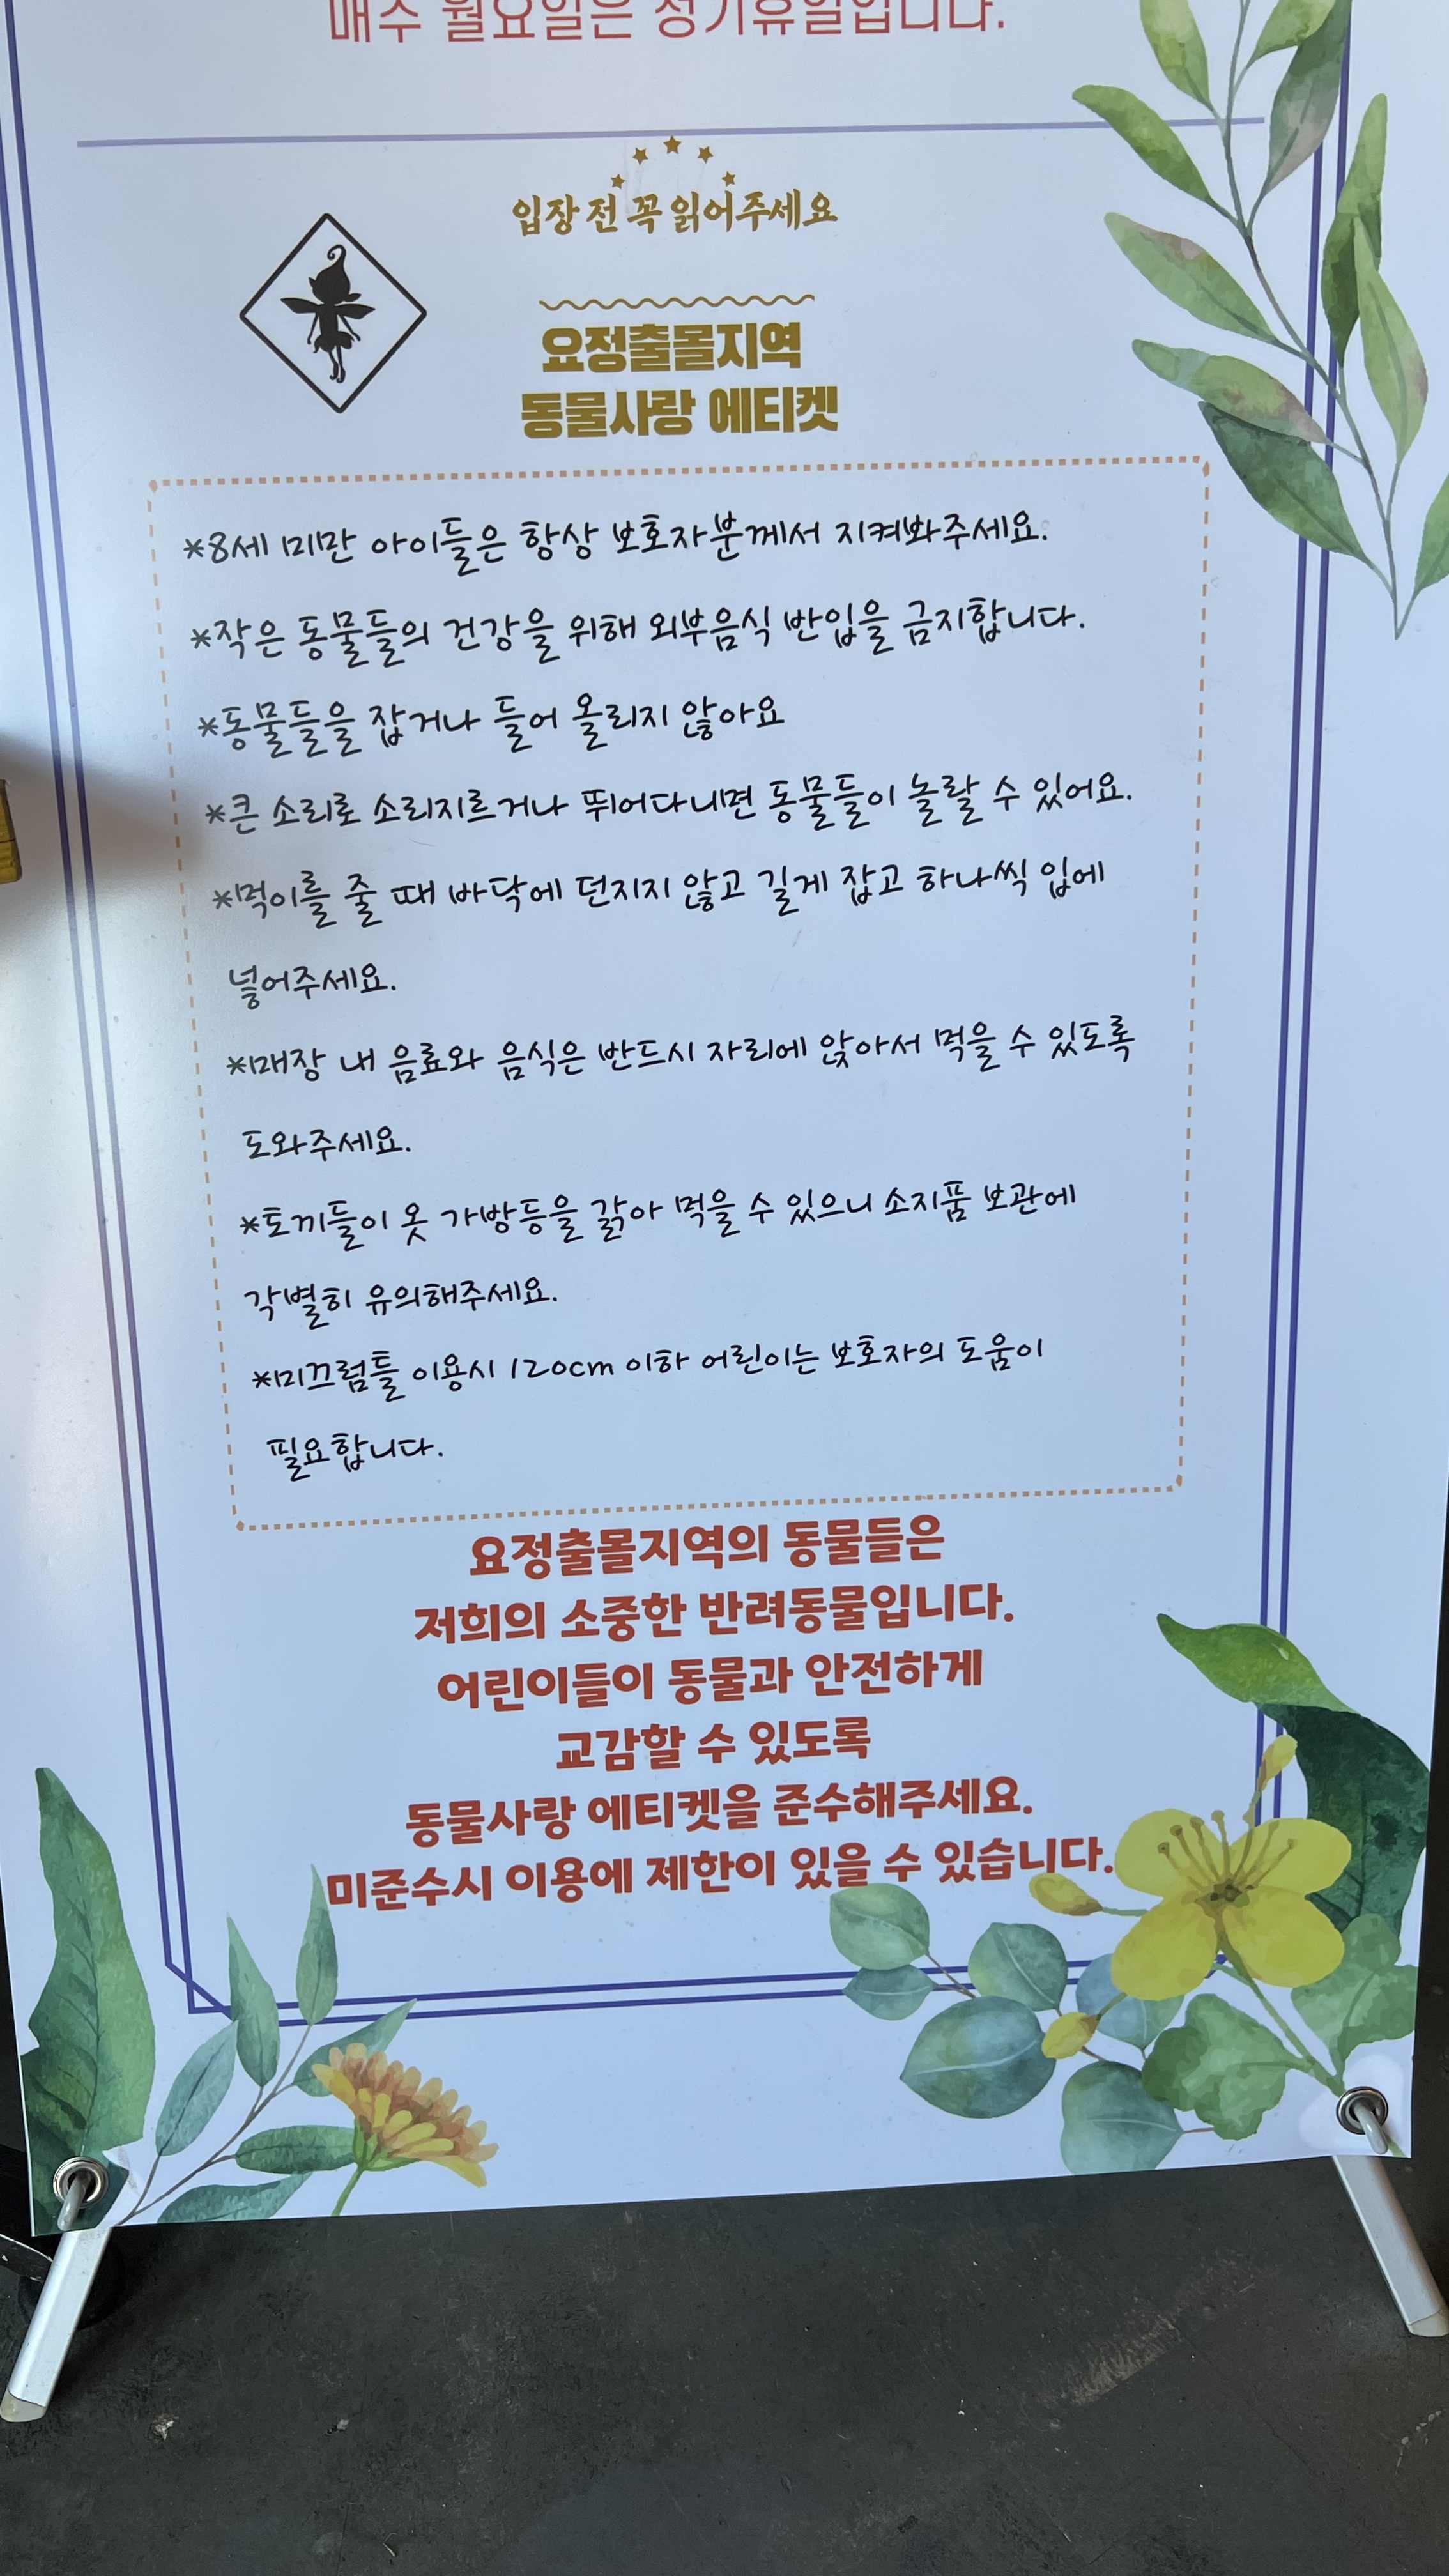 매주 월요일은 정기휴일입니다.
입장 전 꼭 읽어주세요
요정출몰지역
동물사랑 에티켓
*8세 미만 아이들은 항상 보호자분께서 지켜봐주세요.
*작은 동물들의 건강을 위해 외부음식 반입을 금지합니다.
*동물들을 잡거나 들어 올리지 않아요
*큰 소리로 소리지르거나 뛰어다니면 동물들이 놀랄 수 있어요.
*먹이를 줄 때 바닥에 던지지 않고 길게 잡고 하나씩 입에
넣어주세요.
*매장 내 음료와 음식은 반드시 자리에 앉아서 먹을 수 있도록
도와주세요.
*토끼들이 옷 가방등을 갉아 먹을 수 있으니 소지품 보관에
각별히 유의해주세요.
*미끄럼틀 이용시 120cm 이하 어린이는 보호자의 도움이
필요합니다.
요정출몰지역의 동물들은
저희의 소중한 반려동물입니다.
어린이들이 동물과 안전하게
교감할 수 있도록
동물사랑 에티켓을 준수해주세요.
미준수시 이용에 제한이 있을 수 있습니다.